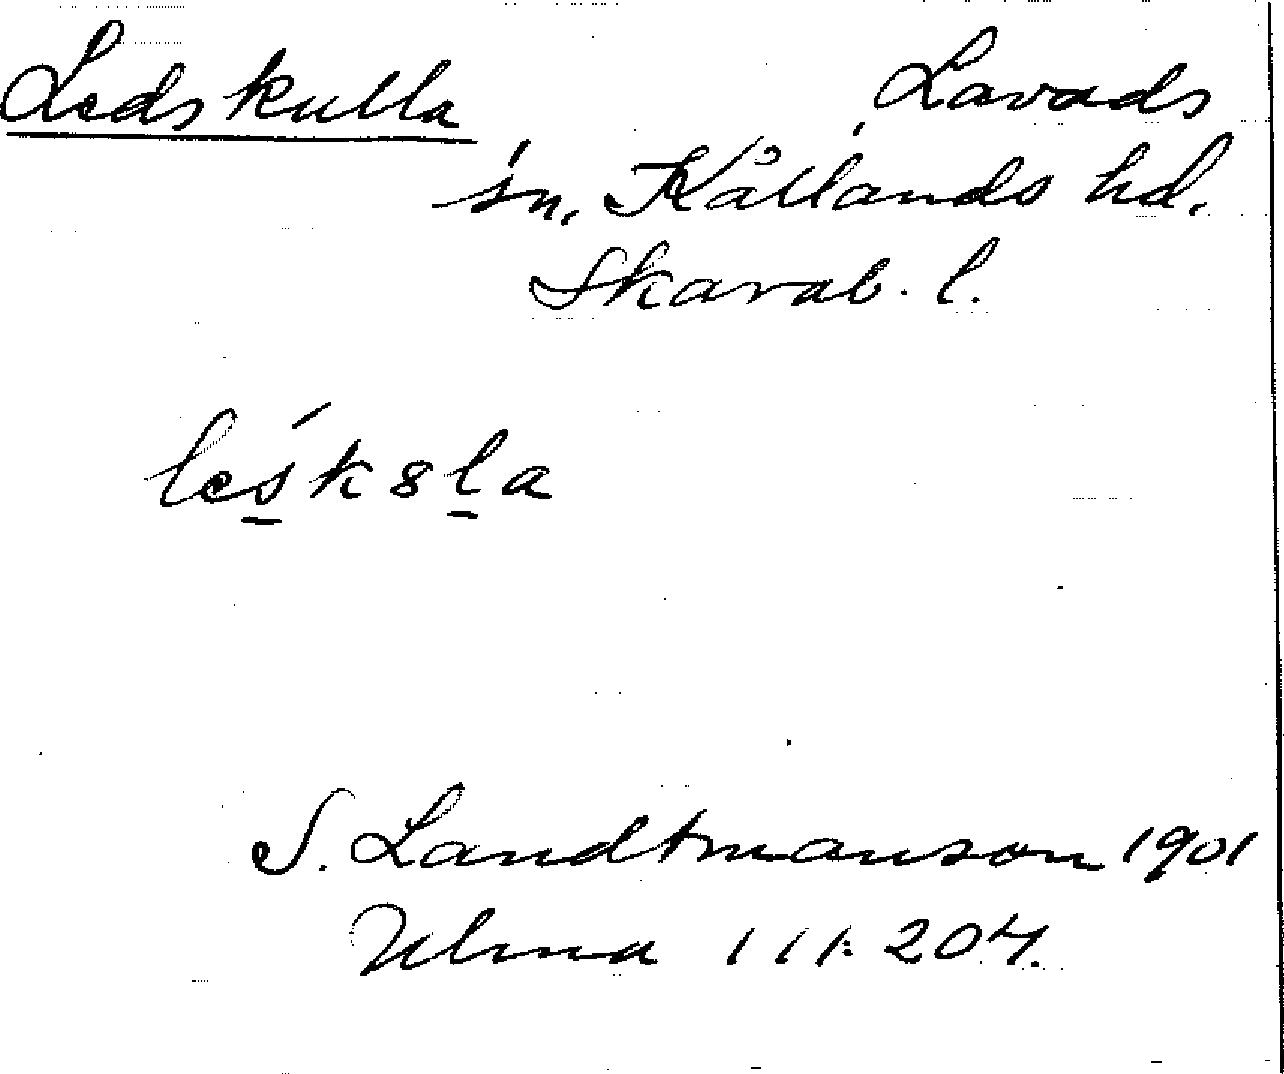 Ledskulla Lavads
sn, Kållands hd.
Skarab. l.
lésk 8la
S. Landtmanson 1901
Ulma 111:204.